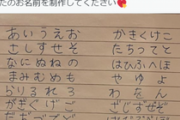 たのお名前を制作してください
あいうえお かきくけこ
さしすせそ たちつてと
なにぬねの はひふへほ
まみむめも や ゆ よ
らりるれろ わ を ん
がぎぐげご ざじずぜぞ